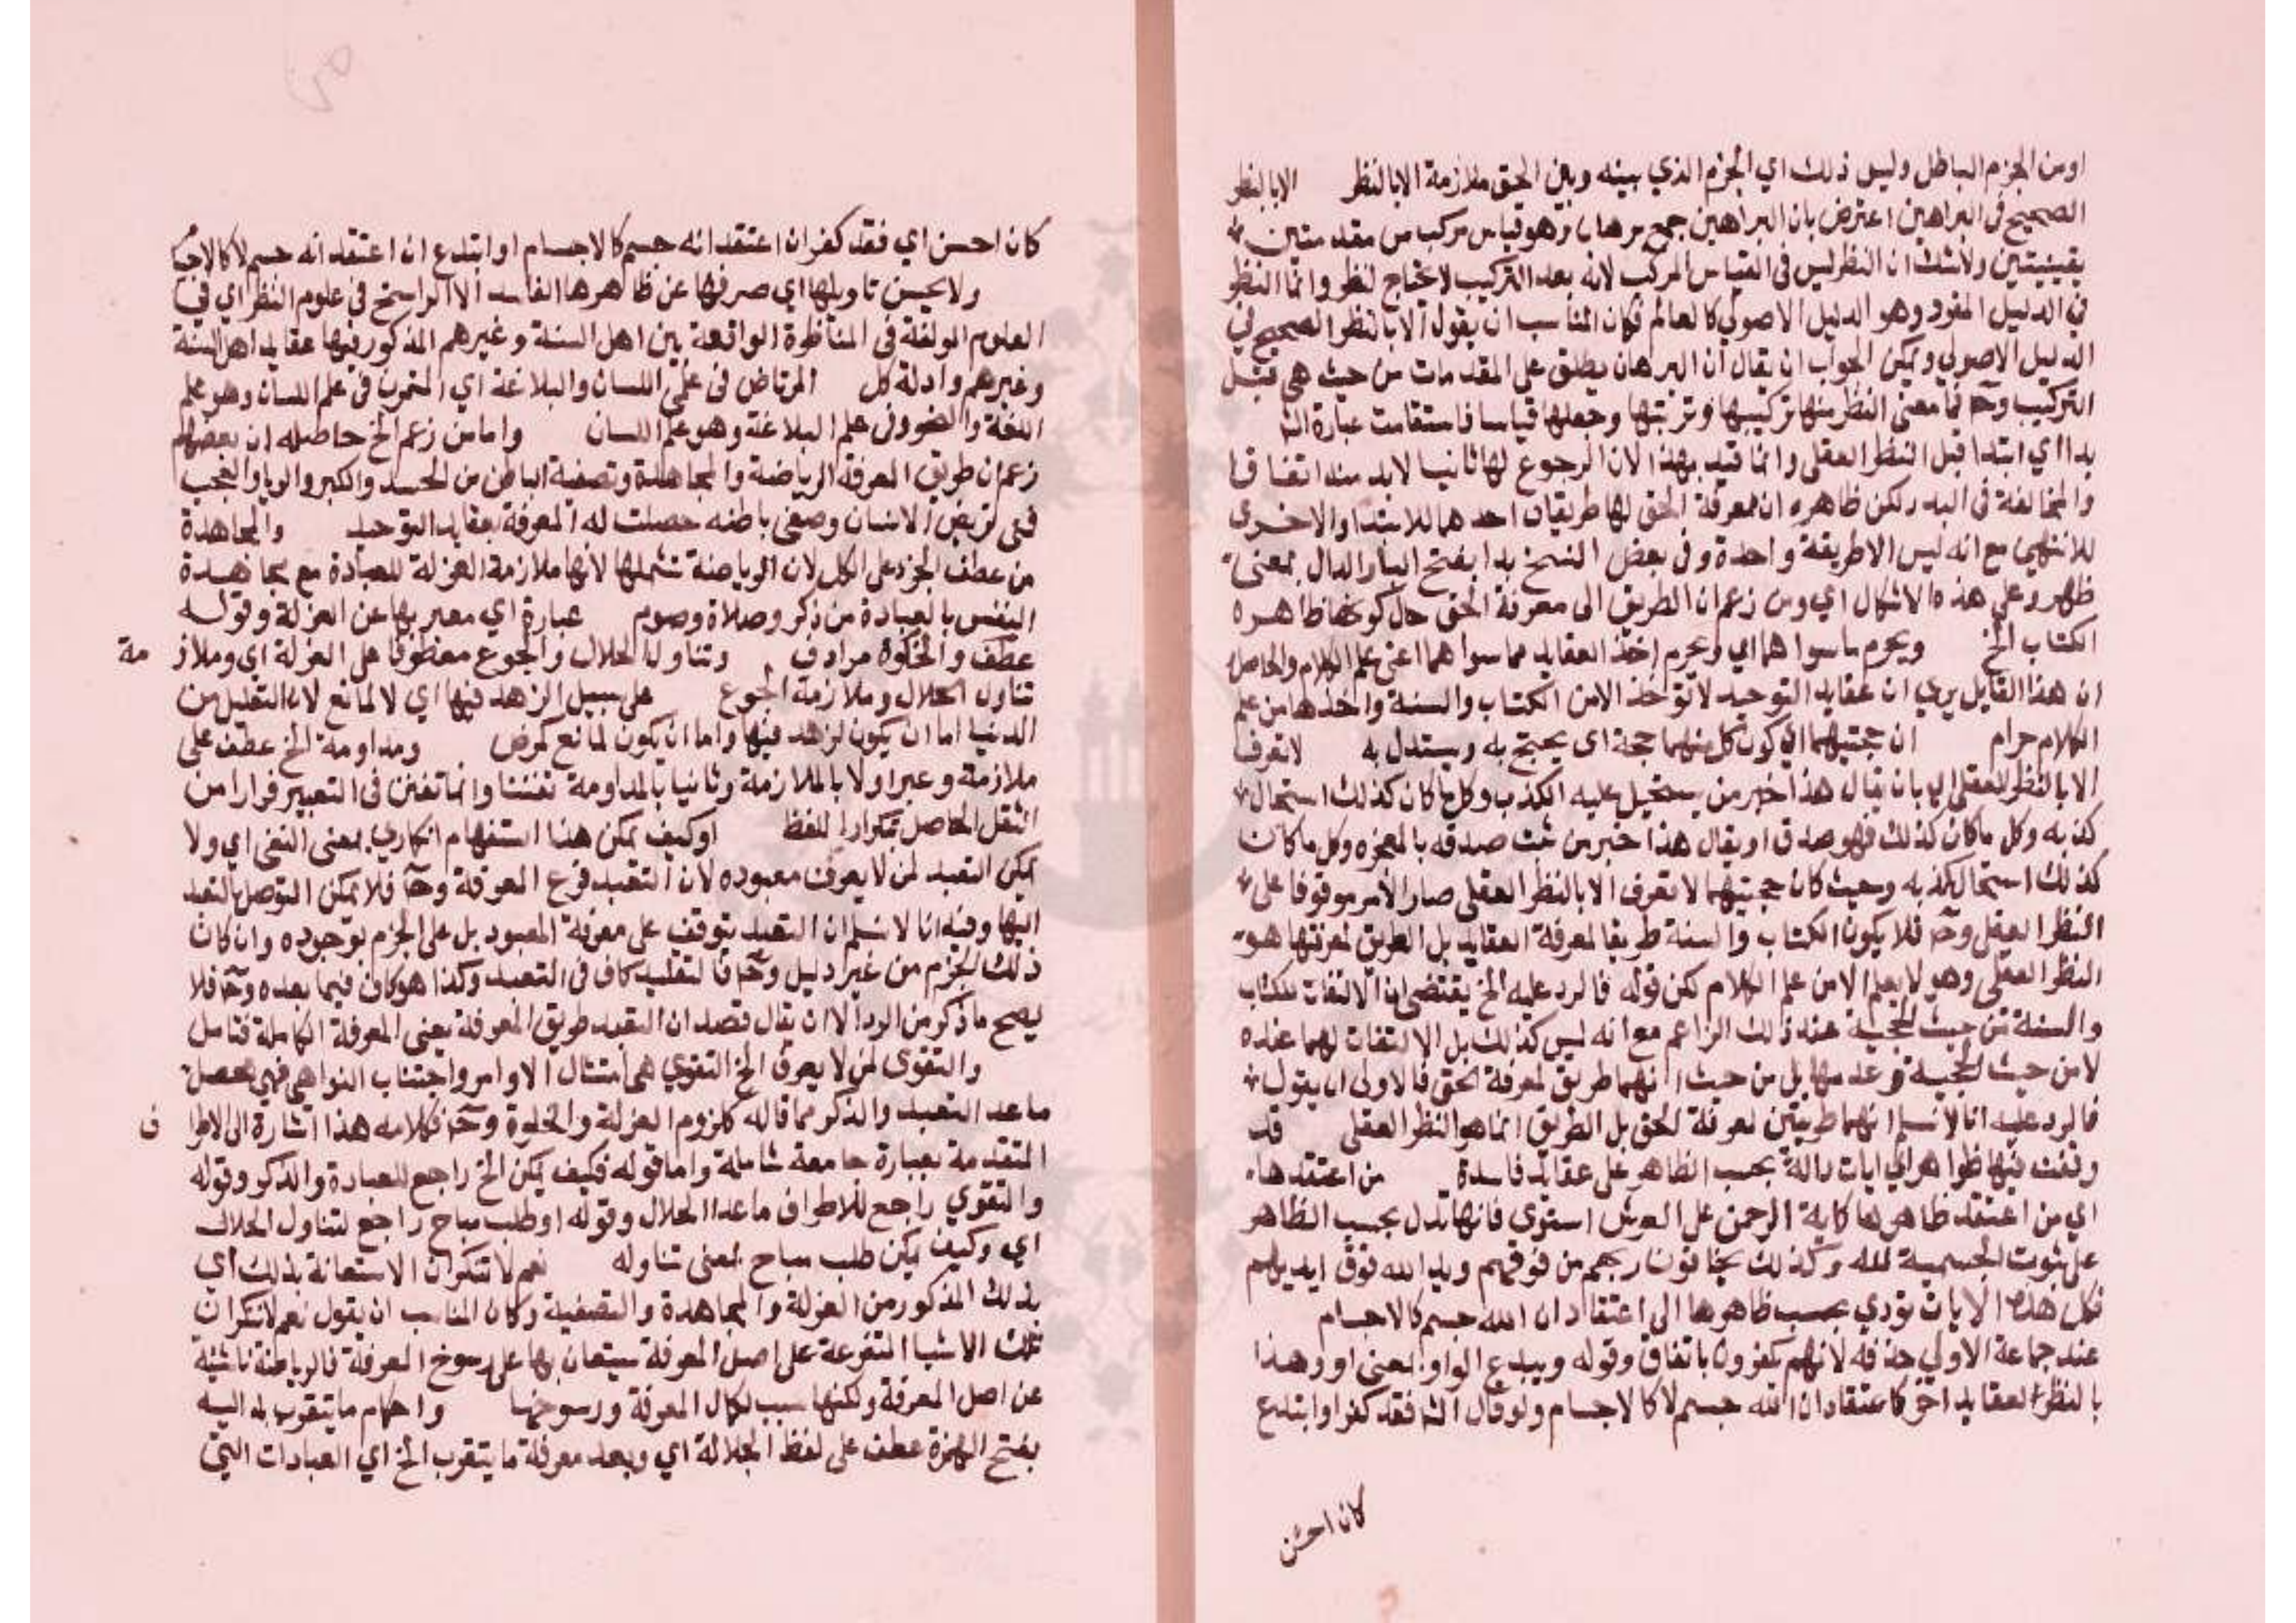 اومن الجزم الباطل وليس ذلك اي الجزم الذي بينه وبين الحق ملازمة الابالنظر الابالنظر
الصحيح في البراهين اعترض بان البراهين جمع برهان وهو قياس مركب من مقدمتين
يقينيتين ولاشك ان النظر ليس في القياس المركب لانه بعد التركيب لا يحتاج لنظر وانما النظر
في الدليل المفرد وهو الدليل الاصولي كالعالم فكان المناسب ان يقول الا بالنظر الصحيح في
الدليل الاصولي ويمكن الجواب ان يقال ان البرهان يطلق على المقدمات من حيث هي قبل
التركيب وح فمعنى النظر منها تركيبها وترتيبها وجعلها قياسا فاستقامت عبارة الش
بدا اي ابتدا قبل النظر العقلي وانما قيد بهذا لان الرجوع لها ثانيا لابد منه اتفاقا
والمخالفة في البد ولكن ظاهره ان معرفة الحق لها طريقان احدهما للابتدا والاخرى
للانتهى مع انه ليس الا طريقة واحدة وفي بعض النسخ بدا بفتح البا والدال بمعنى
ظهر وعلى هذه الاشكال اي ومن زعم ان الطريق الى معرفة الحق حال كونها ظاهره
الكتاب الخ ويحرم ماسواهما اي ويحرم اخذ العقايد مما سواهما اعني علم الكلام والحاصل
ان هذا القايل يري ان عقايد التوحيد لا تؤخذ الا من الكتاب والسنة واخذها من علم
الكلام حرام ان حجتيهما اي كون كل منهما حجة اي يحتج به ويستدل به لا تعرف
الا بالنظر العقلي اي بان يقال هذا خبر من يستحيل عليه الكذب وكل ما كان كذلك استحال
كذبه وكل ما كان كذلك فهو صدق او يقال هذا خبر من ثبت صدقه بالمعجزه وكل ما كان
كذلك استحال كذبه وحيث كان حجيتهما لا تعرف الا بالنظر العقلي صار الامر موقوفا على
النظر العقلي وح فلا يكون الكتاب والسنة طريقا لمعرفة العقايد بل الطريق لمعرفتها هو
النظر العقلي وهو لا يعلم الا من علم الكلام لكن قوله فالرد عليه الخ يقتضي ان الالتفات للكتاب
والسنة من حيث الحجية عند ذلك الزاعم مع انه ليس كذلك بل الالتفات لهما عنده
لا من حيث الحجية وعدمها بل من حيث انهما طريق لمعرفة الحق فالاولى ان يقول
فالرد عليه انا لانسلم انهما طريقين لمعرفة الحق بل الطريق انما هو النظر العقلي قد
وقفت فيها ظواهر اي ايات دالة بحسب الظاهر على عقايد فاسدة من اعتقدها
اي من اعتقد ظاهرها كاية الرحمن على العرش استوى فانها تدل بحسب الظاهر
على ثبوت الجسمية لله وكذلك يخافون ربهم من فوقهم ويد الله فوق ايديهم
فكل هذه الايات تؤدي بحسب ظاهرها الى اعتقاد ان الله جسم كالاجسام
عند جماعة الاولى حذفه لانهم كفروا باتفاق وقوله ويبدع الواو بمعنى او وهذا
بالنظر لعقايد اخر كاعتقاد ان الله جسم لا كالاجسام ولو قال الش فقد كفر او ابتدع
كان احسن
كان احسن اي فقد كفر ان اعتقد انه جسم كالاجسام او ابتدع ان اعتقد انه جسم لا كالاجسا
ولا يحسن تاويلها اي صرفها عن ظاهرها الفاسد الا الراسخ في علوم النظر اي في
العلوم المولفة في المناظرة الواقعة بين اهل السنة وغيرهم المذكور فيها عقايد اهل السنة
وغيرهم وادلة كل المرتاض في علمي اللسان والبلاغة اي المتمرن في علم اللسان وهو علم
اللغة والنحو وفي علم البلاغة وهو علم اللسان واما من زعم الخ حاصله ان بعضهم
زعم ان طريق المعرفة الرياضة والمجاهدة وتصفية الباطن من الحسد والكبر والريا والعجب
فمتى تريض الانسان وصفى باطنه حصلت له المعرفة بعقايد التوحيد والمجاهدة
من عطف الجزء على الكل لان الرياضة تشملها لانها ملازمة العزلة للعبادة مع مجاهدة
النفس بالعبادة من ذكر وصلاة وصوم عبارة اي معبر بها عن العزلة وقوله
عطف والخلوة مرادف وتناول الحلال والجوع معطوف على العزلة اي وملاز مة
تناول الحلال وملازمة الجوع على سبيل الزهد فيها اي لا لمانع لان التقليل من
الدنيا اما ان يكون لزهد فيها واما ان يكون لمانع كمرض ومداومة الخ عطف على
ملازمة وعبر اولا بالملازمة وثانيا بالمداومة تفننا وانما تفنن في التعبير فرارا من
الثقل الحاصل بتكرار اللفظ او كيف يمكن هذا استفهام انكاري بمعنى النفي اي ولا
يمكن التعبد لمن لا يعرف معبوده لان التعبد فرع المعرفة وح فلا يمكن التوصل بالتعبد
اليها وفيه انا لا نسلم ان التعبد يتوقف على معرفة المعبود بل على الجزم بوجوده وان كان
ذلك الجزم من غير دليل وح فالتقليد كاف في التعبد وكذا هو كاف فيما بعده وح فلا
يصح ما ذكر من الرد الا ان يقال قصد ان التعبد طريق المعرفة يعني المعرفة الكاملة فتامل
والتقوى لمن لا يعرف الخ التقوي هي امتثال الاوامر واجتناب النواهي فهي تحصل
ماعدا التعبد والذكر مما قاله كلزوم العزلة والخلوة وح فكلامه هذا اشارة الى الاطرا ف
المتقدمة بعبارة جامعة شاملة واما قوله فكيف يمكن الخ راجع للعبادة والذكر وقوله
والتقوي راجع للاطراف ماعدا الحلال وقوله او طلب مباح راجع لتناول الحلال
اي وكيف يمكن طلب مباح بمعنى تناوله نعم لا تنكر ان الاستعانة بذلك اي
بذلك المذكور من العزلة والمجاهدة والتصفية وكان المناسب ان يقول نعم لا ننكر ان
تلك الاشيا المتفرعة على اصل المعرفة يستعان بها على رسوخ المعرفة فالرياضة ناشئة
عن اصل المعرفة ولكنها سبب لكمال المعرفة ورسوخها واحكام ما يتقرب به اليه
بفتح الهمزة عطف على لفظ الجلالة اي وبعد معرفة ما يتقرب الخ اي العبادات التي